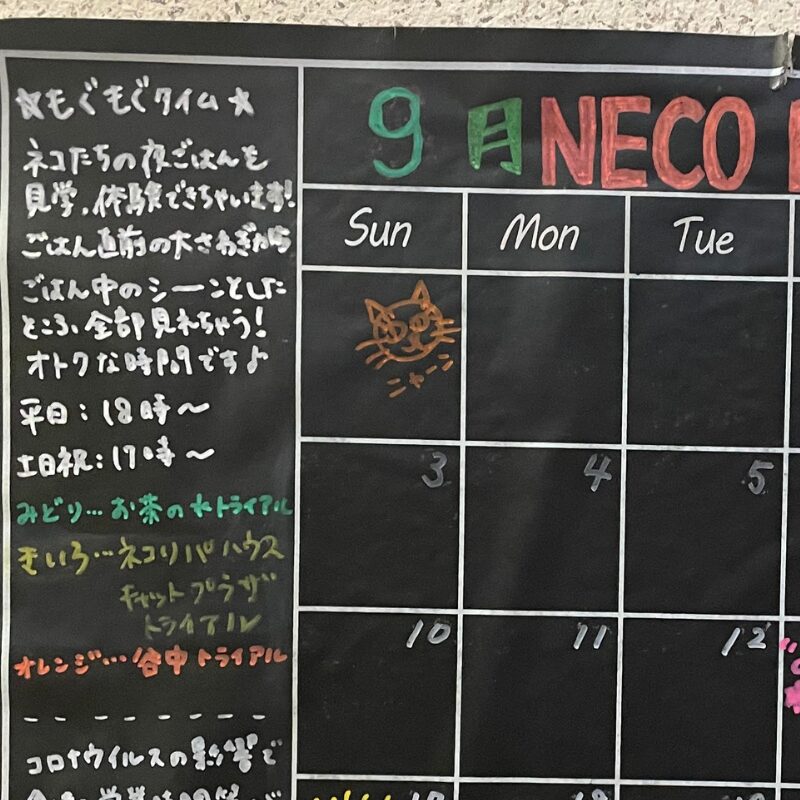 ☆もぐもぐタイム☆
ネコたちの夜ごはんを
見学、体験できちゃいます!
ごはん直前の大さわぎから
ごはん中のシーンとした
ところ、全部見れちゃう!
オトクな時間ですよ
平日:18時〜
土日祝:17時〜
みどり…お茶の水トライアル
きいろ…ネコリパハウス
キャットプラザ
トライアル
オレンジ…谷中トライアル
コロナウイルスの影響で
9月 NECO
Sun Mon Tue
ニャーン
3 4 5
10 11 12